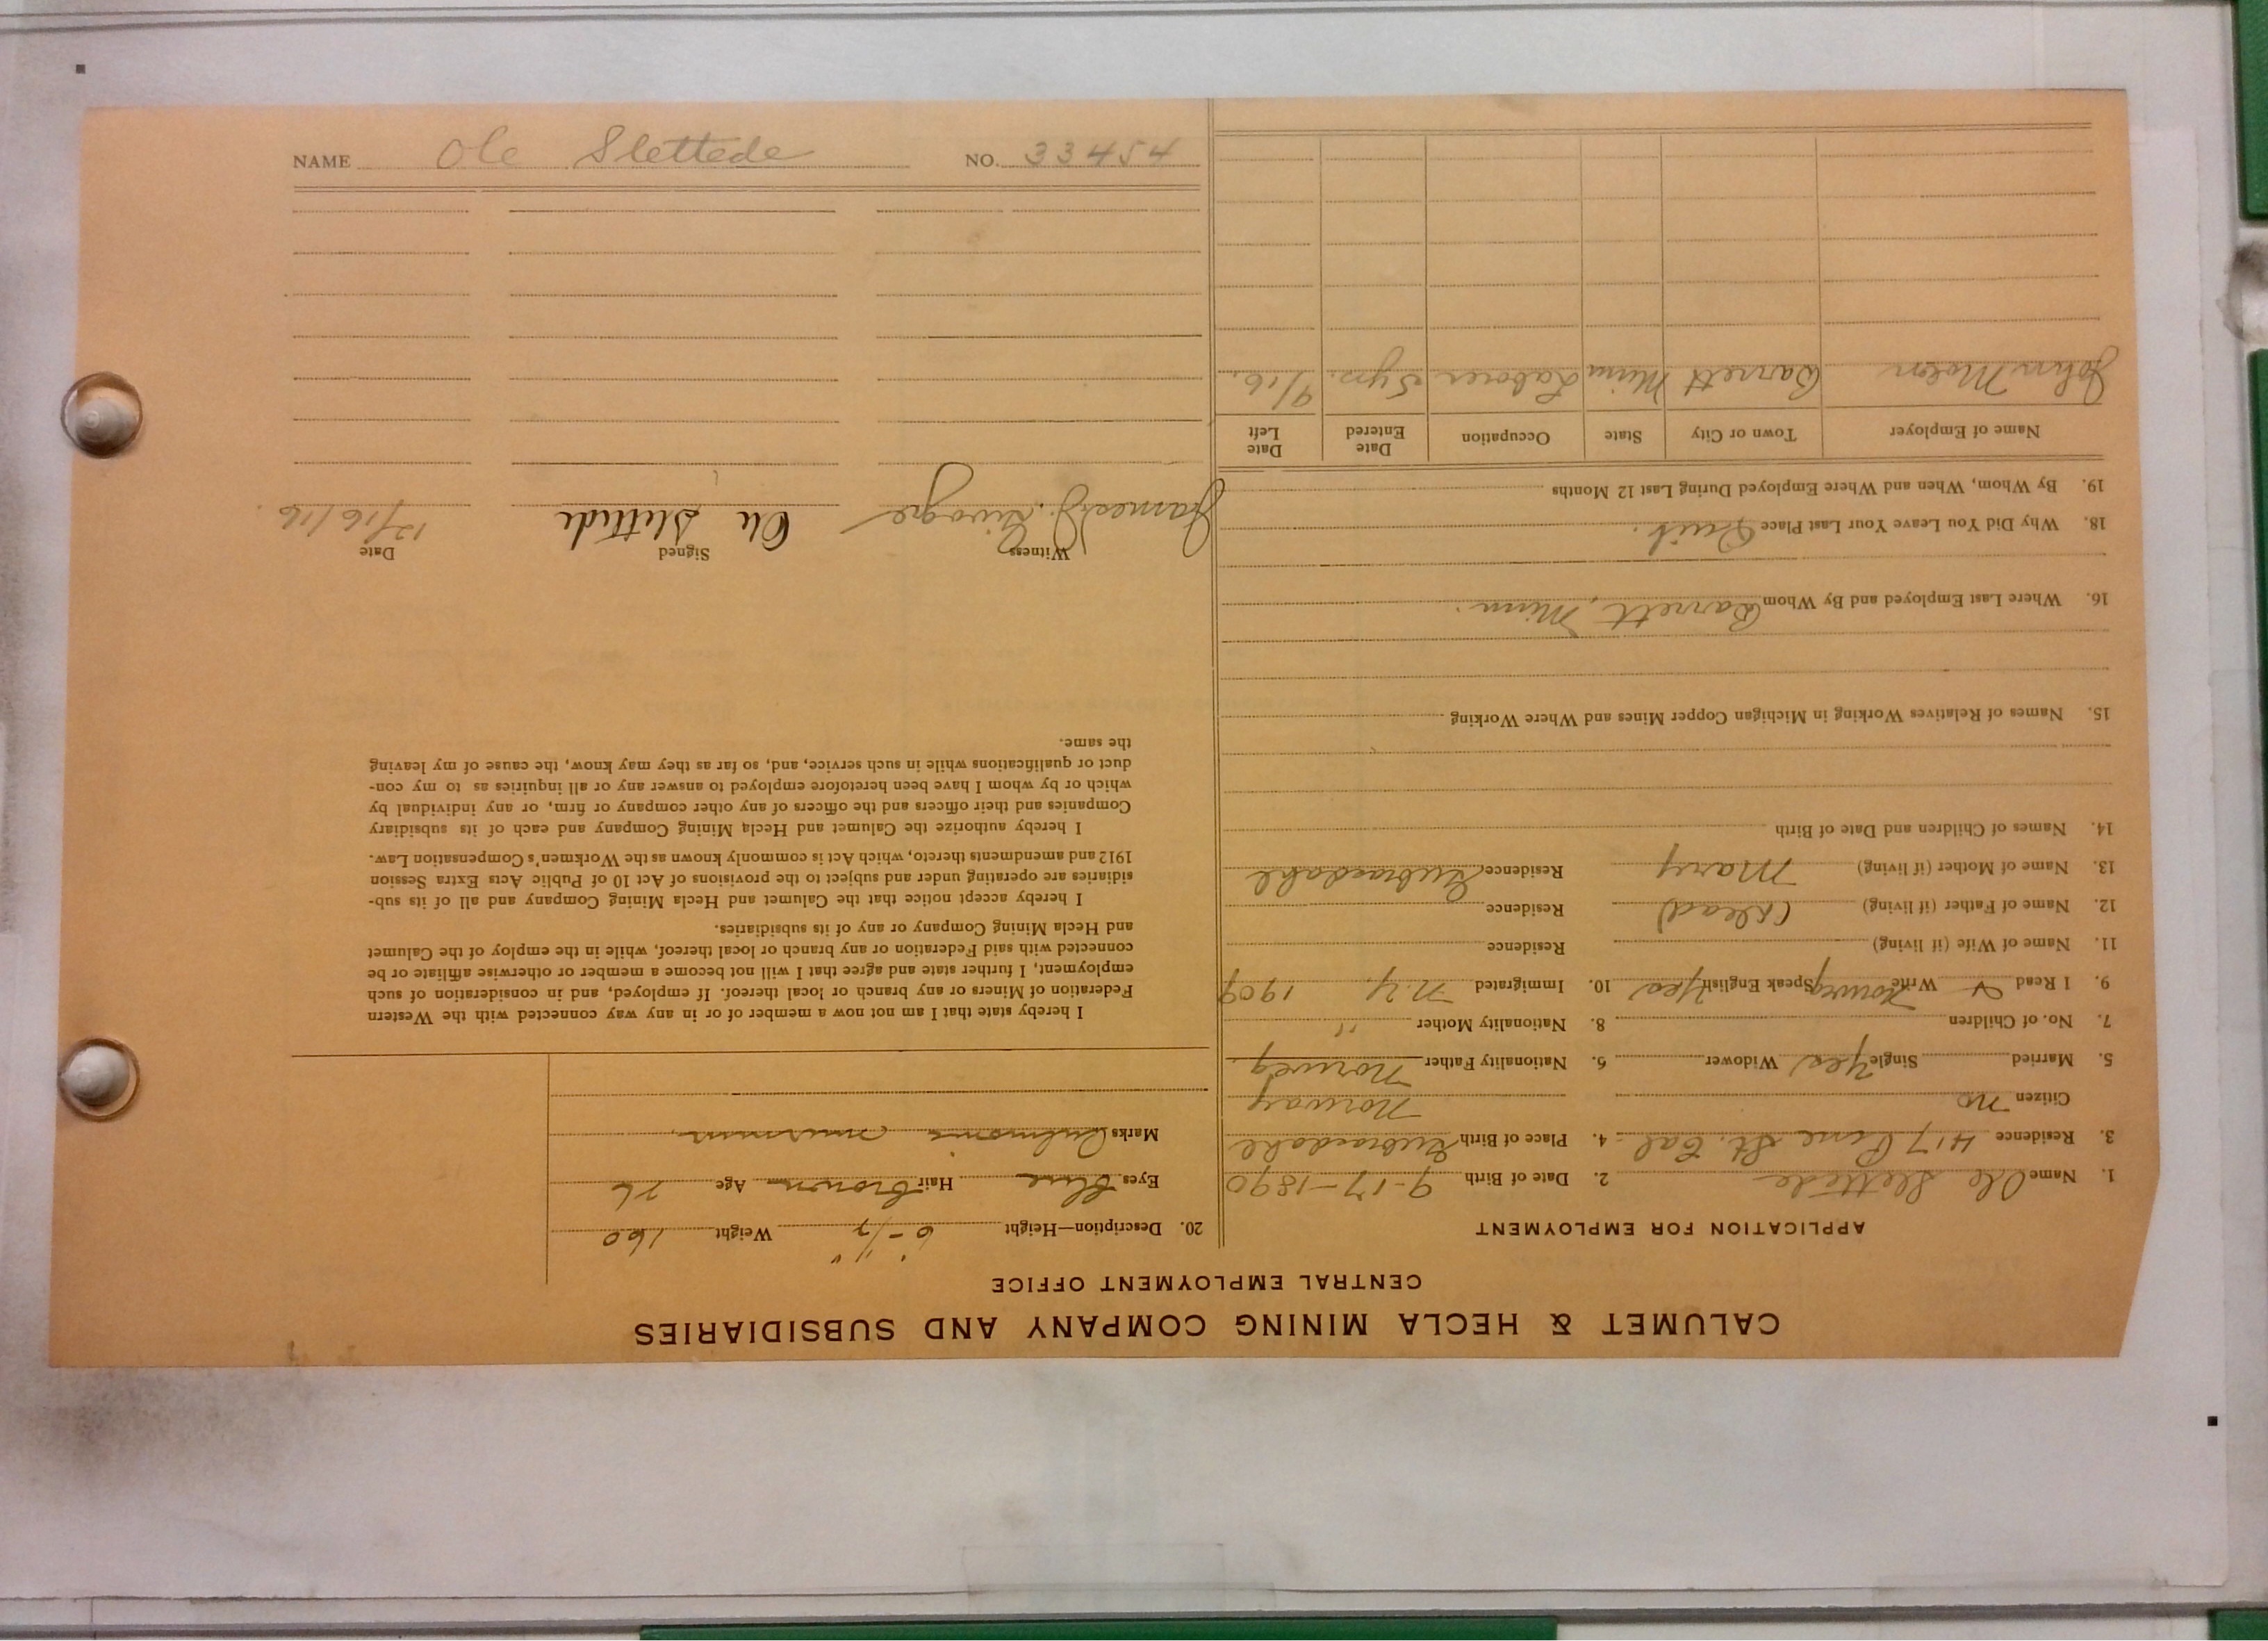 CALUMET & HECLA MINING COMPANY AND SUBSIDIARIES
CENTRAL EMPLOYMENT OFFICE
APPLICATION FOR EMPLOYMENT
1. Name Ole Slettede 2. Date of Birth 9-17-1890
3. Residence 417 Pine St. Cal. 4. Place of Birth Gubrasdahl
Citizen no Norway
5. Married Single Yes Widower 6. Nationality Father Norweg.
7. No. of Children 8. Nationality Mother "
9. I Read & Write Norweg Speak English Yes 10. Immigrated N.Y. 1909
11. Name of Wife (if living) Residence
12. Name of Father (if living) (Dead) Residence
13. Name of Mother (if living) Mary Residence Gubrasdahl
14. Names of Children and Date of Birth
15. Names of Relatives Working in Michigan Copper Mines and Where Working
16. Where Last Employed and By Whom Barrett, Minn.
18. Why Did You Leave Your Last Place Quit.
19. By Whom, When and Where Employed During Last 12 Months
Name of Employer Town or City State Occupation Date Entered Date Left
John Moen Barrett Minn Laborer 5 yrs. 9/16.
20. Description—Height 6'-1/2" Weight 160
Eyes Blue Hair Brown Age 26
Marks
I hereby state that I am not now a member of or in any way connected with the Western
Federation of Miners or any branch or local thereof. If employed, and in consideration of such
employment, I further state and agree that I will not become a member or otherwise affiliate or be
connected with said Federation or any branch or local thereof, while in the employ of the Calumet
and Hecla Mining Company or any of its subsidiaries.
I hereby accept notice that the Calumet and Hecla Mining Company and all of its sub-
sidiaries are operating under and subject to the provisions of Act 10 of Public Acts Extra Session
1912 and amendments thereto, which Act is commonly known as the Workmen's Compensation Law.
I hereby authorize the Calumet and Hecla Mining Company and each of its subsidiary
Companies and their officers and the officers of any other company or firm, or any individual by
which or by whom I have been heretofore employed to answer any or all inquiries as to my con-
duct or qualifications while in such service, and, so far as they may know, the cause of my leaving
the same.
Witness Signed Date
James J. Ole Slettede 12/16/16.
NAME Ole Slettede NO. 33454